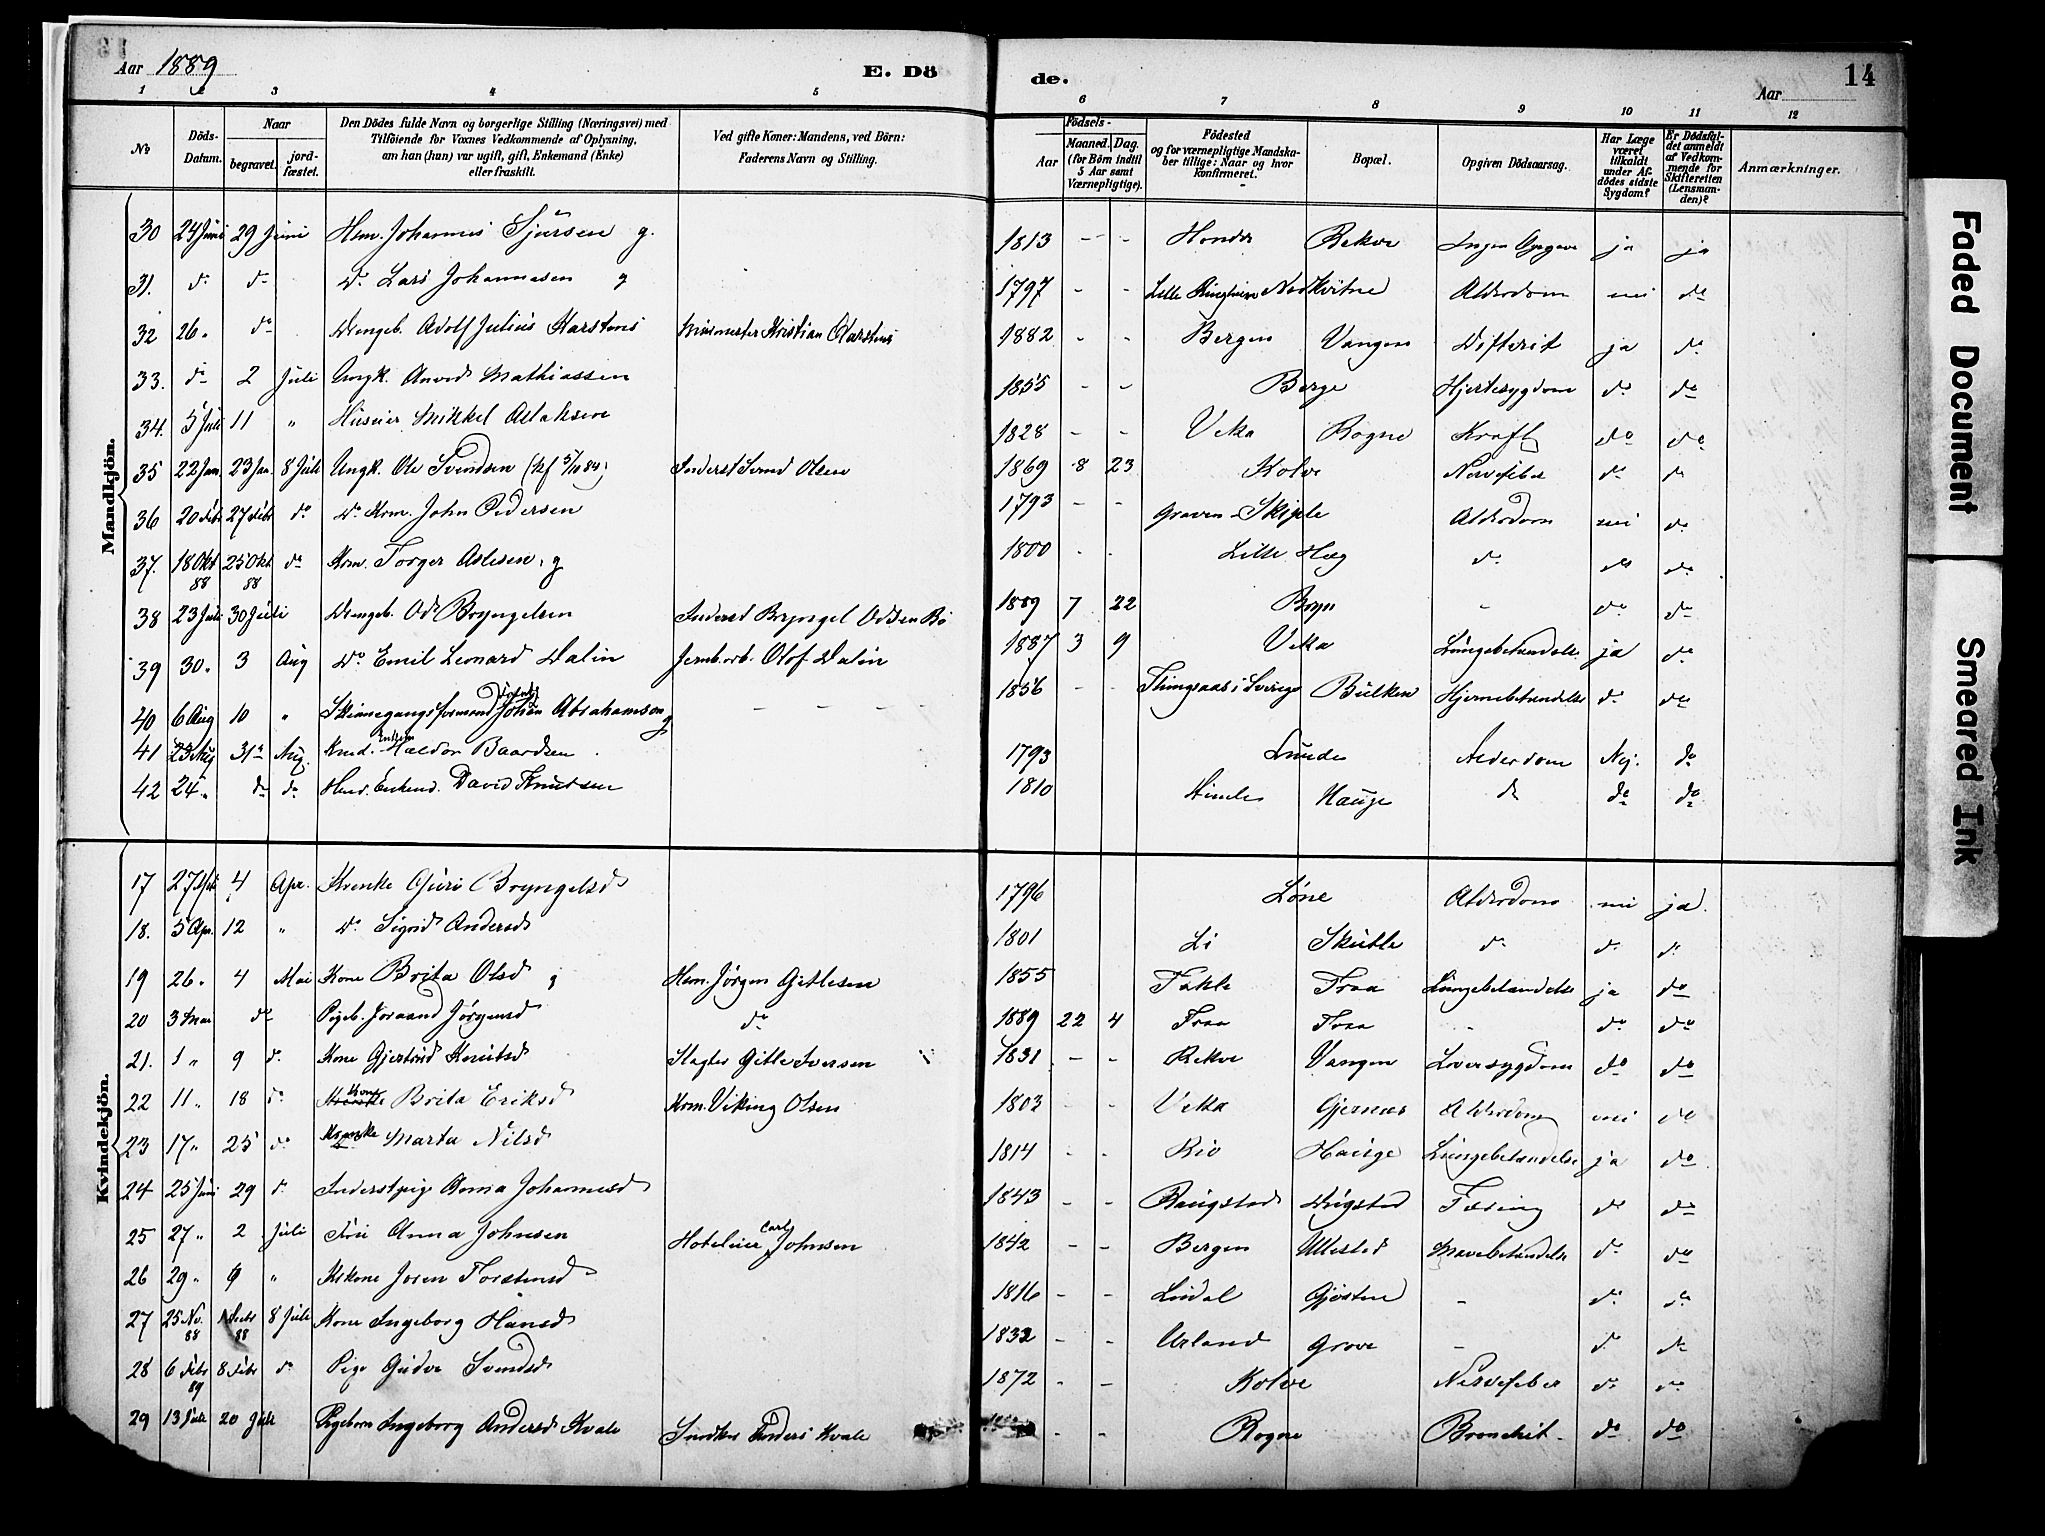 Aar 1889
E. Dö
de.
14
Aar
1 2 3 4 5
6 7 8 9 10 11 12
No
Döds-Datum.
Naar
begravet.
jord-fæstet.
Den Dödes fulde Navn og borgerlige Stilling (Næringsvei) med
Tilföiende for Voxnes Vedkommende af Oplysning,
om han (hun) var ugift, gift, Enkemand (Enke)
eller fraskilt.
Ved gifte Koner: Mandens, ved Börn:
Faderens Navn og Stilling.
Födsels-
Aar
Maaned. Dag.
(for Börn indtil
5 Aar samt
Værnepligtige).
Födested
og for værnepligtige Mandska-
ber tillige: Naar og hvor
konfirmeret.
Bopæl.
Opgiven Dödsaarsag.
Har Læge
været
tilkaldt
under Af-
dödes sidste
Sygdom?
Er Dödsfal-
det anmeldt
af Vedkom-
mende for
Skifteretten
(Lensman-
den)?
Anmærkninger.
Mandkjön.
30 24 Juni 29 Juni Hsm. Johannes Sjursen g. 1813 - - Bekve Ingen ja ja
31. do do do Lars Johannesen g 1797 - - Lille Ringheim Nedkvitne Alderdom nei do
32 26 " do Drengeb. Adolf Julius Karstens Kristian Karstens 1882 - - Bergen Vangen Difterit ja do
33. do 2 Juli Ungk. Mathiassen 1855 - - Berge Hjertesygdom do do
34. 5 Juli 11 " Huseier Mikkel Aslaksen 1828 - - Veka Rogne Kræft do do
35 22 Jan. 23 Jan. 8 Juli Ungk. Ole Svendsen (kf 5/10 84) Inderst Svend Olsen 1869 8 23 Kolve Nervefeber do do
36 20 Febr 27 Febr do Do Krm. John Pedersen 1793 - - Graven - Skiple Alderdom nei do
37. 18 Okt 88 25 Okt 88 do Krm. Torger Aslesen. g 1800 - - Lille Hæg do do do
38 23 Juli 30 Juli Drengeb. Od Bryngelsen Inderst Bryngel Odsen Bø 1889 7 22 - do do
39 30. 3 Aug Do Emil Leonard Dalin Jernb.arb. Olof Dalin 1887 3 9 Veka Lungebetændelse ja do
40 6 Aug 10 " Skinnegangsformand Johan Abrahamson g - - - - 1856 - - Thingsaas i Sverige Bulken Hjernebetændelse do do
41 23 Aug 31te Aug. Enkem Haldor Baardsen 1793 Lunde Alderdom Nej. do
42 24 " do do Enkem. David Knutsen 1810 Himle Hauge do do do
Kvindekjön.
17 27 4 Apr. Kvenke Guri Bryngelsd 1796 Løne Alderdom nei ja.
18. 5 Apr. 12 " do Sigrid Andersd 1801 Li Skutle do do do
19 26 " 4 Mai Kone Brita Olsd g Hsm. Jørgen Gitlesen 1855 Tøkle Traa Lungebetændelse ja do
20 3 Mai do Pigeb. Joraand Jørgensd do 1889 22 4 Traa Traa - do do
21. 1 " 9 do Kone Gjertrud Knutsd Slagter Gitle Iversen 1831 - - Rekve Vangen Leversygdom do do
22 11 " 18 do Kone Brita Eriksd Krm. Viking Olsen 1803 - - Veka Gjernes Alderdom nei do
23 17 " 25 do Kvenke Marta Nilsd 1814 - - Rio Hauge Lungebetændelse ja do
24 25 Juni 29 do Inderstpige Anna Johannesd 1843 - - Raugstad Dugstad Tæring do do
25 27 " 2 Juli Fru Anna Johnsen Hoteleier Carl Johnsen 1842 - - Bergen Ullestad Mavebetændelse do do
26 29 " 6 " Krkone Joren Torstensd 1816 - - Lindal Gjøstein - do do
27 25 Nov. 88 1 Decbr 88 8 Juli Kone Ingeborg Hansd 1832 - - Urland Grove - do do
28 6 Febr 89 8 Febr do Pige Gudve Svendsd 1872 - - Kolve Nervefeber do do
29 13 Juli 20 Juli Pigebarn Ingeborg Andersd Kvale Anders Kvale - - Rogne Bronchit. do do
Faded Document
Smeared Ink